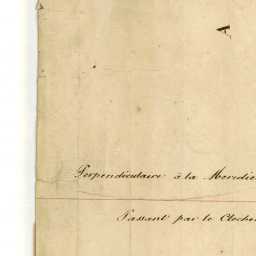 A
Perpendiculaire à la Meridie
Passant par le Cloche